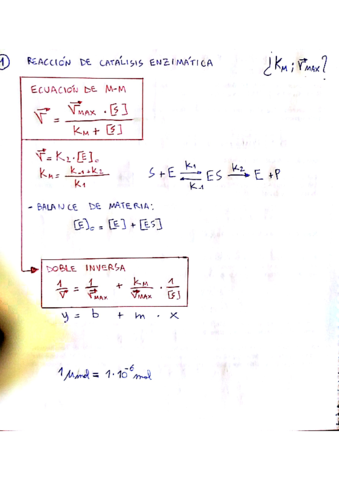 1 REACCIÓN DE CATÁLISIS ENZIMÁTICA ¿KM ; VMAX?
ECUACIÓN DE M-M
V = VMAX · [S] / KM + [S]
V = K2 · [E]0
KM = K-1 + K2 / K1
S + E ⇌ ES → E + P
K1 K-1 K2
- BALANCE DE MATERIA:
[E]0 = [E] + [ES]
DOBLE INVERSA
1/V = 1/VMAX + KM/VMAX · 1/[S]
y = b + m · x
1 μmol = 1·10⁻⁶ mol